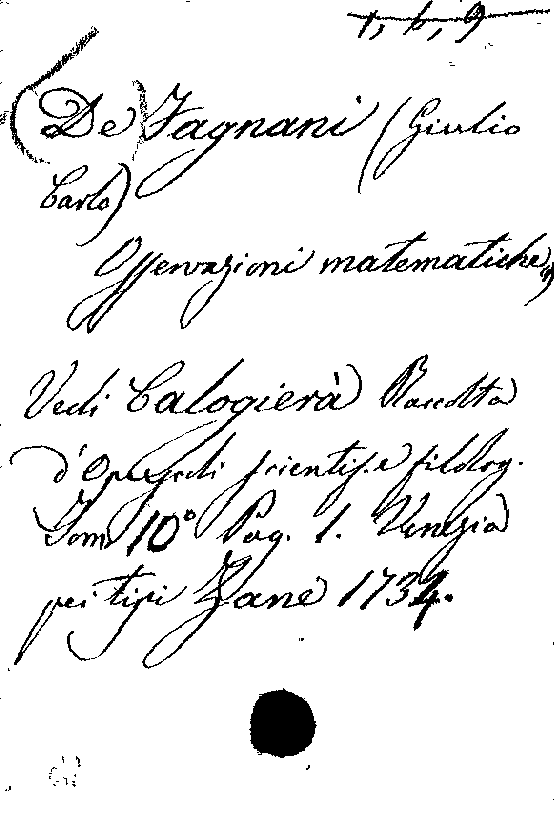 1, b, 9
(De) Fagnani (Giulio
Carlo)
Osservazioni matematiche
Vedi Calogierà Raccolta
d'Opuscoli scientif. e filolog.
Tom 10º Pag. 1. Venezia
pei tipi Zane 1734.